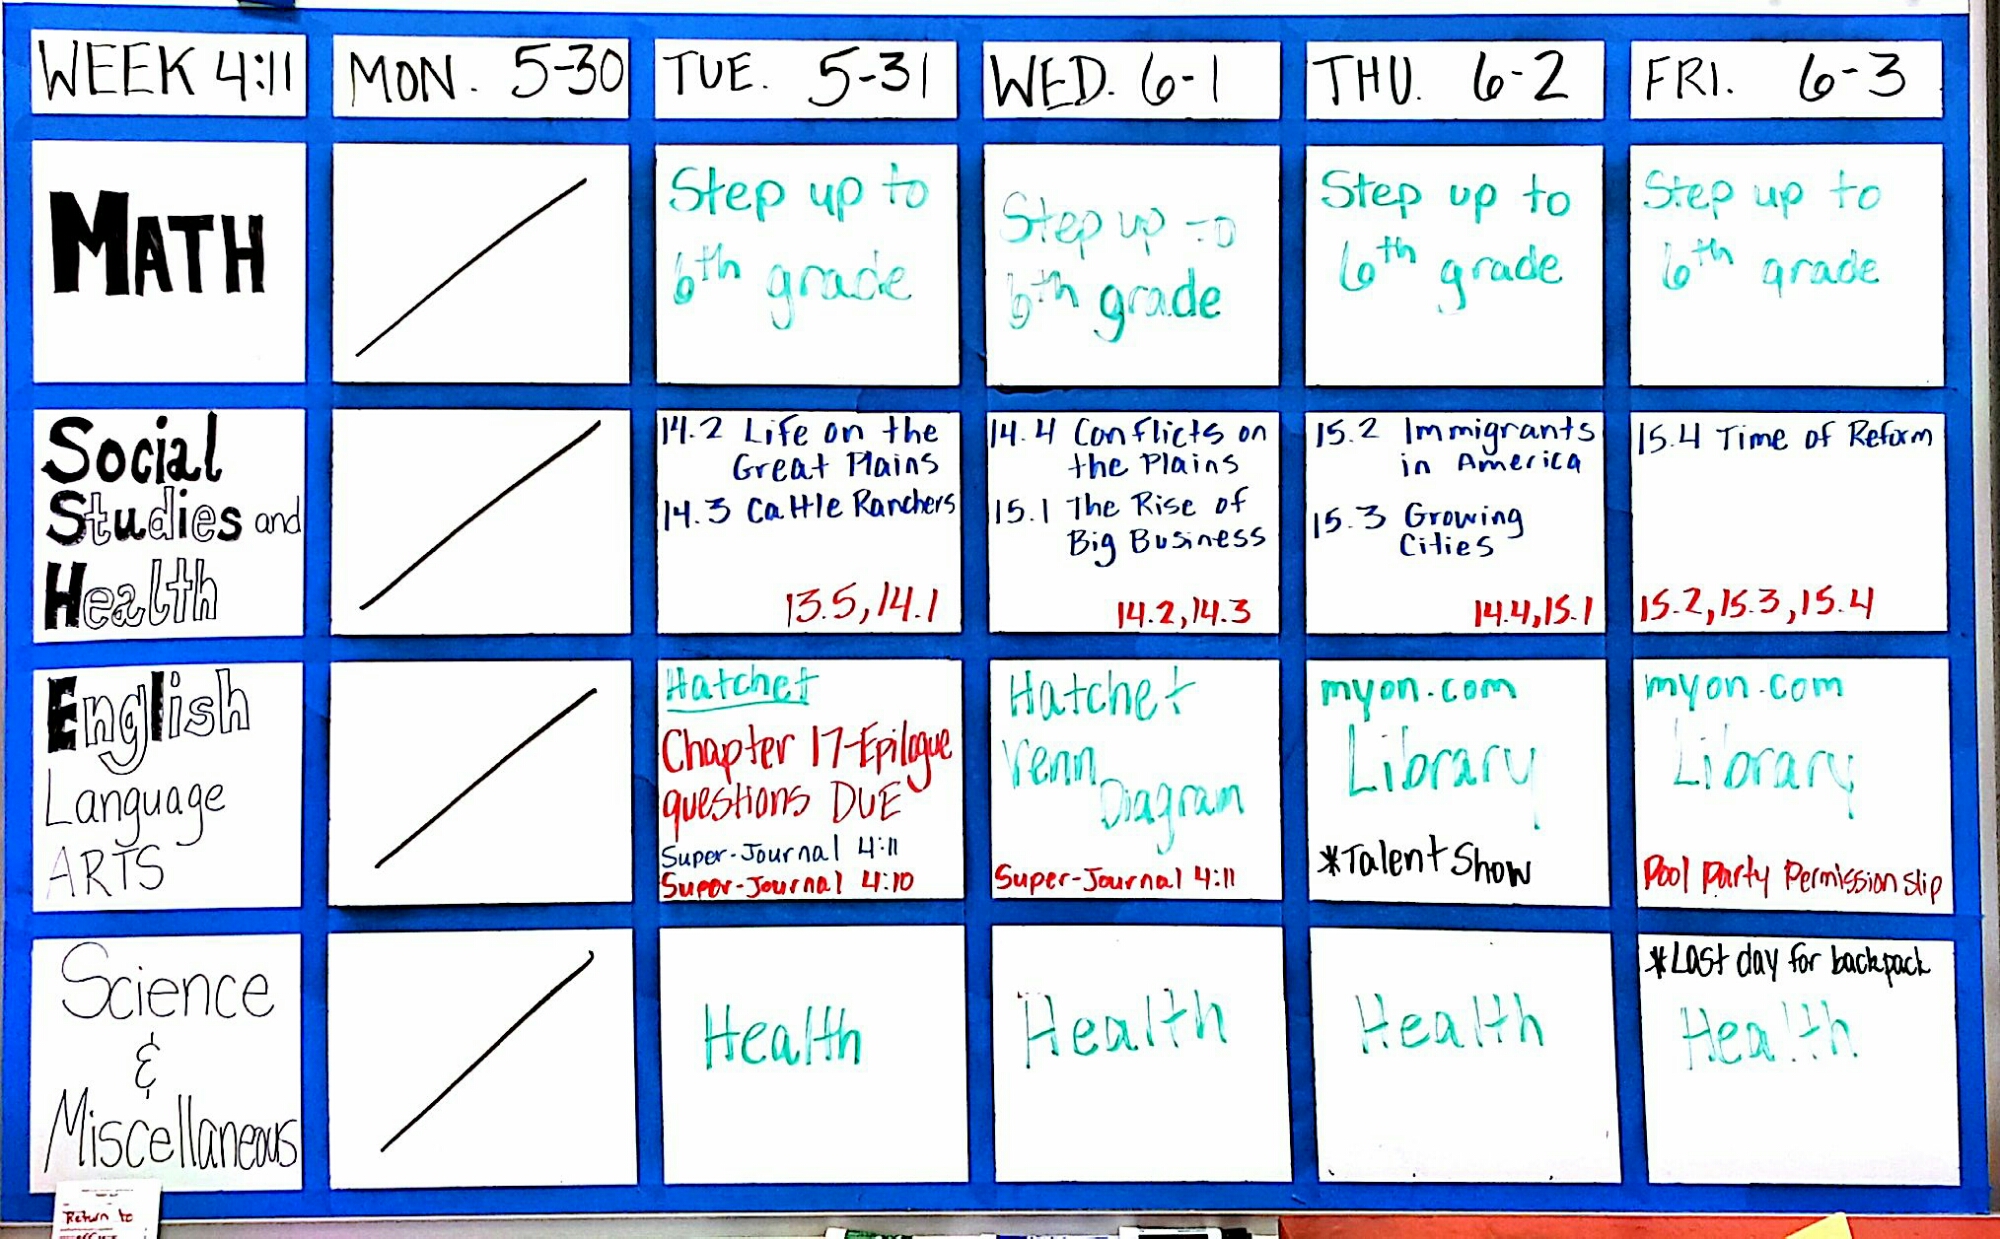 WEEK 4:11
MON. 5-30
TUE. 5-31
WED. 6-1
THU. 6-2
FRI. 6-3
MATH
Step up to
6th grade
Step up to
6th grade
Step up to
6th grade
Step up to
6th grade
Social
Studies and
Health
14.2 Life on the
Great Plains
14.3 Cattle Ranchers
13.5, 14.1
14.4 Conflicts on
the Plains
15.1 The Rise of
Big Business
14.2, 14.3
15.2 Immigrants
in America
15.3 Growing
Cities
14.4, 15.1
15.4 Time of Reform
15.2, 15.3, 15.4
English
Language
ARTS
Hatchet
Chapter 17-Epilogue
questions DUE
Super-Journal 4:11
Super-Journal 4:10
Hatchet
Venn
Diagram
Super-Journal 4:11
myon.com
Library
*Talent Show
myon.com
Library
Pool Party Permission slip
Science
&
Miscellaneous
Health
Health
Health
*Last day for backpack
Health
Return to
office